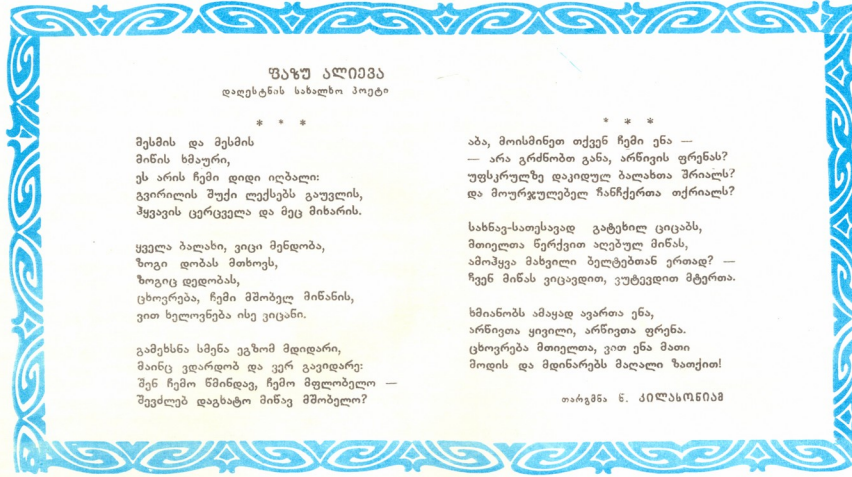 ფაზუ ალიევა
დაღესტნის სახალხო პოეტი
* * *
მესმის და მესმის
მიწის ხმაური,
ეს არის ჩემი დიდი იღბალი:
გვირილის შუქი ლექსებს გაუვლის,
ჰყვავის ცერცველა და მეც მიხარის.
ყველა ბალახი, ვიცი მენდობა,
ზოგი დობას მთხოვს,
ზოგიც დედობას,
ცხოვრება, ჩემი მშობელ მიწანის,
ვით ხელოვნება ისე ვიცანი.
გამეხსნა სმენა ეგზომ მდიდარი,
მაინც ვდარდობ და ვერ გავიდარე:
შენ ჩემო წმინდავ, ჩემო მფლობელო —
შევძლებ დაგხატო მიწავ მშობელო?
* * *
აბა, მოისმინეთ თქვენ ჩემი ენა —
— არა გრძნობთ განა, არწივის ფრენას?
უფსკრულზე დაკიდულ ბალახთა შრიალს?
და მოურჯულებელ ჩანჩქერთა თქრიალს?
სახნავ-სათესავად გატეხილ ციცაბს,
მთიელთა წერქვით აღებულ მიწას,
ამოჰყვა მახვილი ბელტებთან ერთად? —
ჩვენ მიწას ვიცავდით, ვუტევდით მტერთა.
ხმიანობს ამაყად ავართა ენა,
არწივთა ყივილი, არწივთა ფრენა.
ცხოვრება მთიელთა, ვით ენა მათი
მოდის და მდინარებს მაღალი ზათქით!
თარგმნა ნ. კილასონიამ